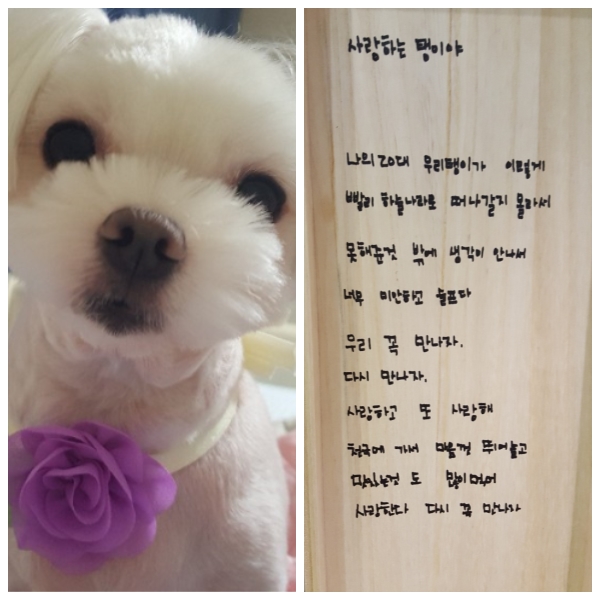 사랑하는 탱이야
나의 20대 우리탱이가 이렇게
빨리 하늘나라로 떠나갈지 몰라서
못해준것 밖에 생각이 안나서
너무 미안하고 슬프다
우리 꼭 만나자.
다시 만나자.
사랑하고 또 사랑해
천국에 가서 마음껏 뛰어놀고
맛있는것도 많이먹어
사랑한다 다시 꼭 만나자